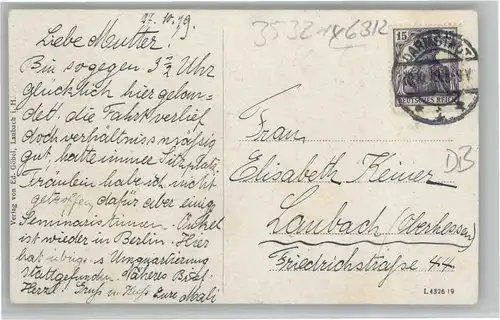 27. 10. 19.
3532
6812
Liebe Mutter!
Bin sogegen 3 ½ Uhr
glücklich hier gelan-
det. die Fahrt verlief
doch verhältnissmäßig
gut, hatte immer Sitzplatz.
Fräulein habe ich nicht
getroffen dafür aber einige
Seminaristinnen. Onkel
ist wieder in Berlin. Hier
hat übrigens Umquartierung
stattgefunden. Näheres Brief.
Herzl. Gruss u. Kuss Eure Mali
Verlag von Fr. Göbel, Laubach i. H.
15
DEUTSCHES REICH
DARMSTADT
Frau
Elisabeth Keiner
Laubach (Oberhessen)
Friedrichstraße 44
DB
L. 4326/9